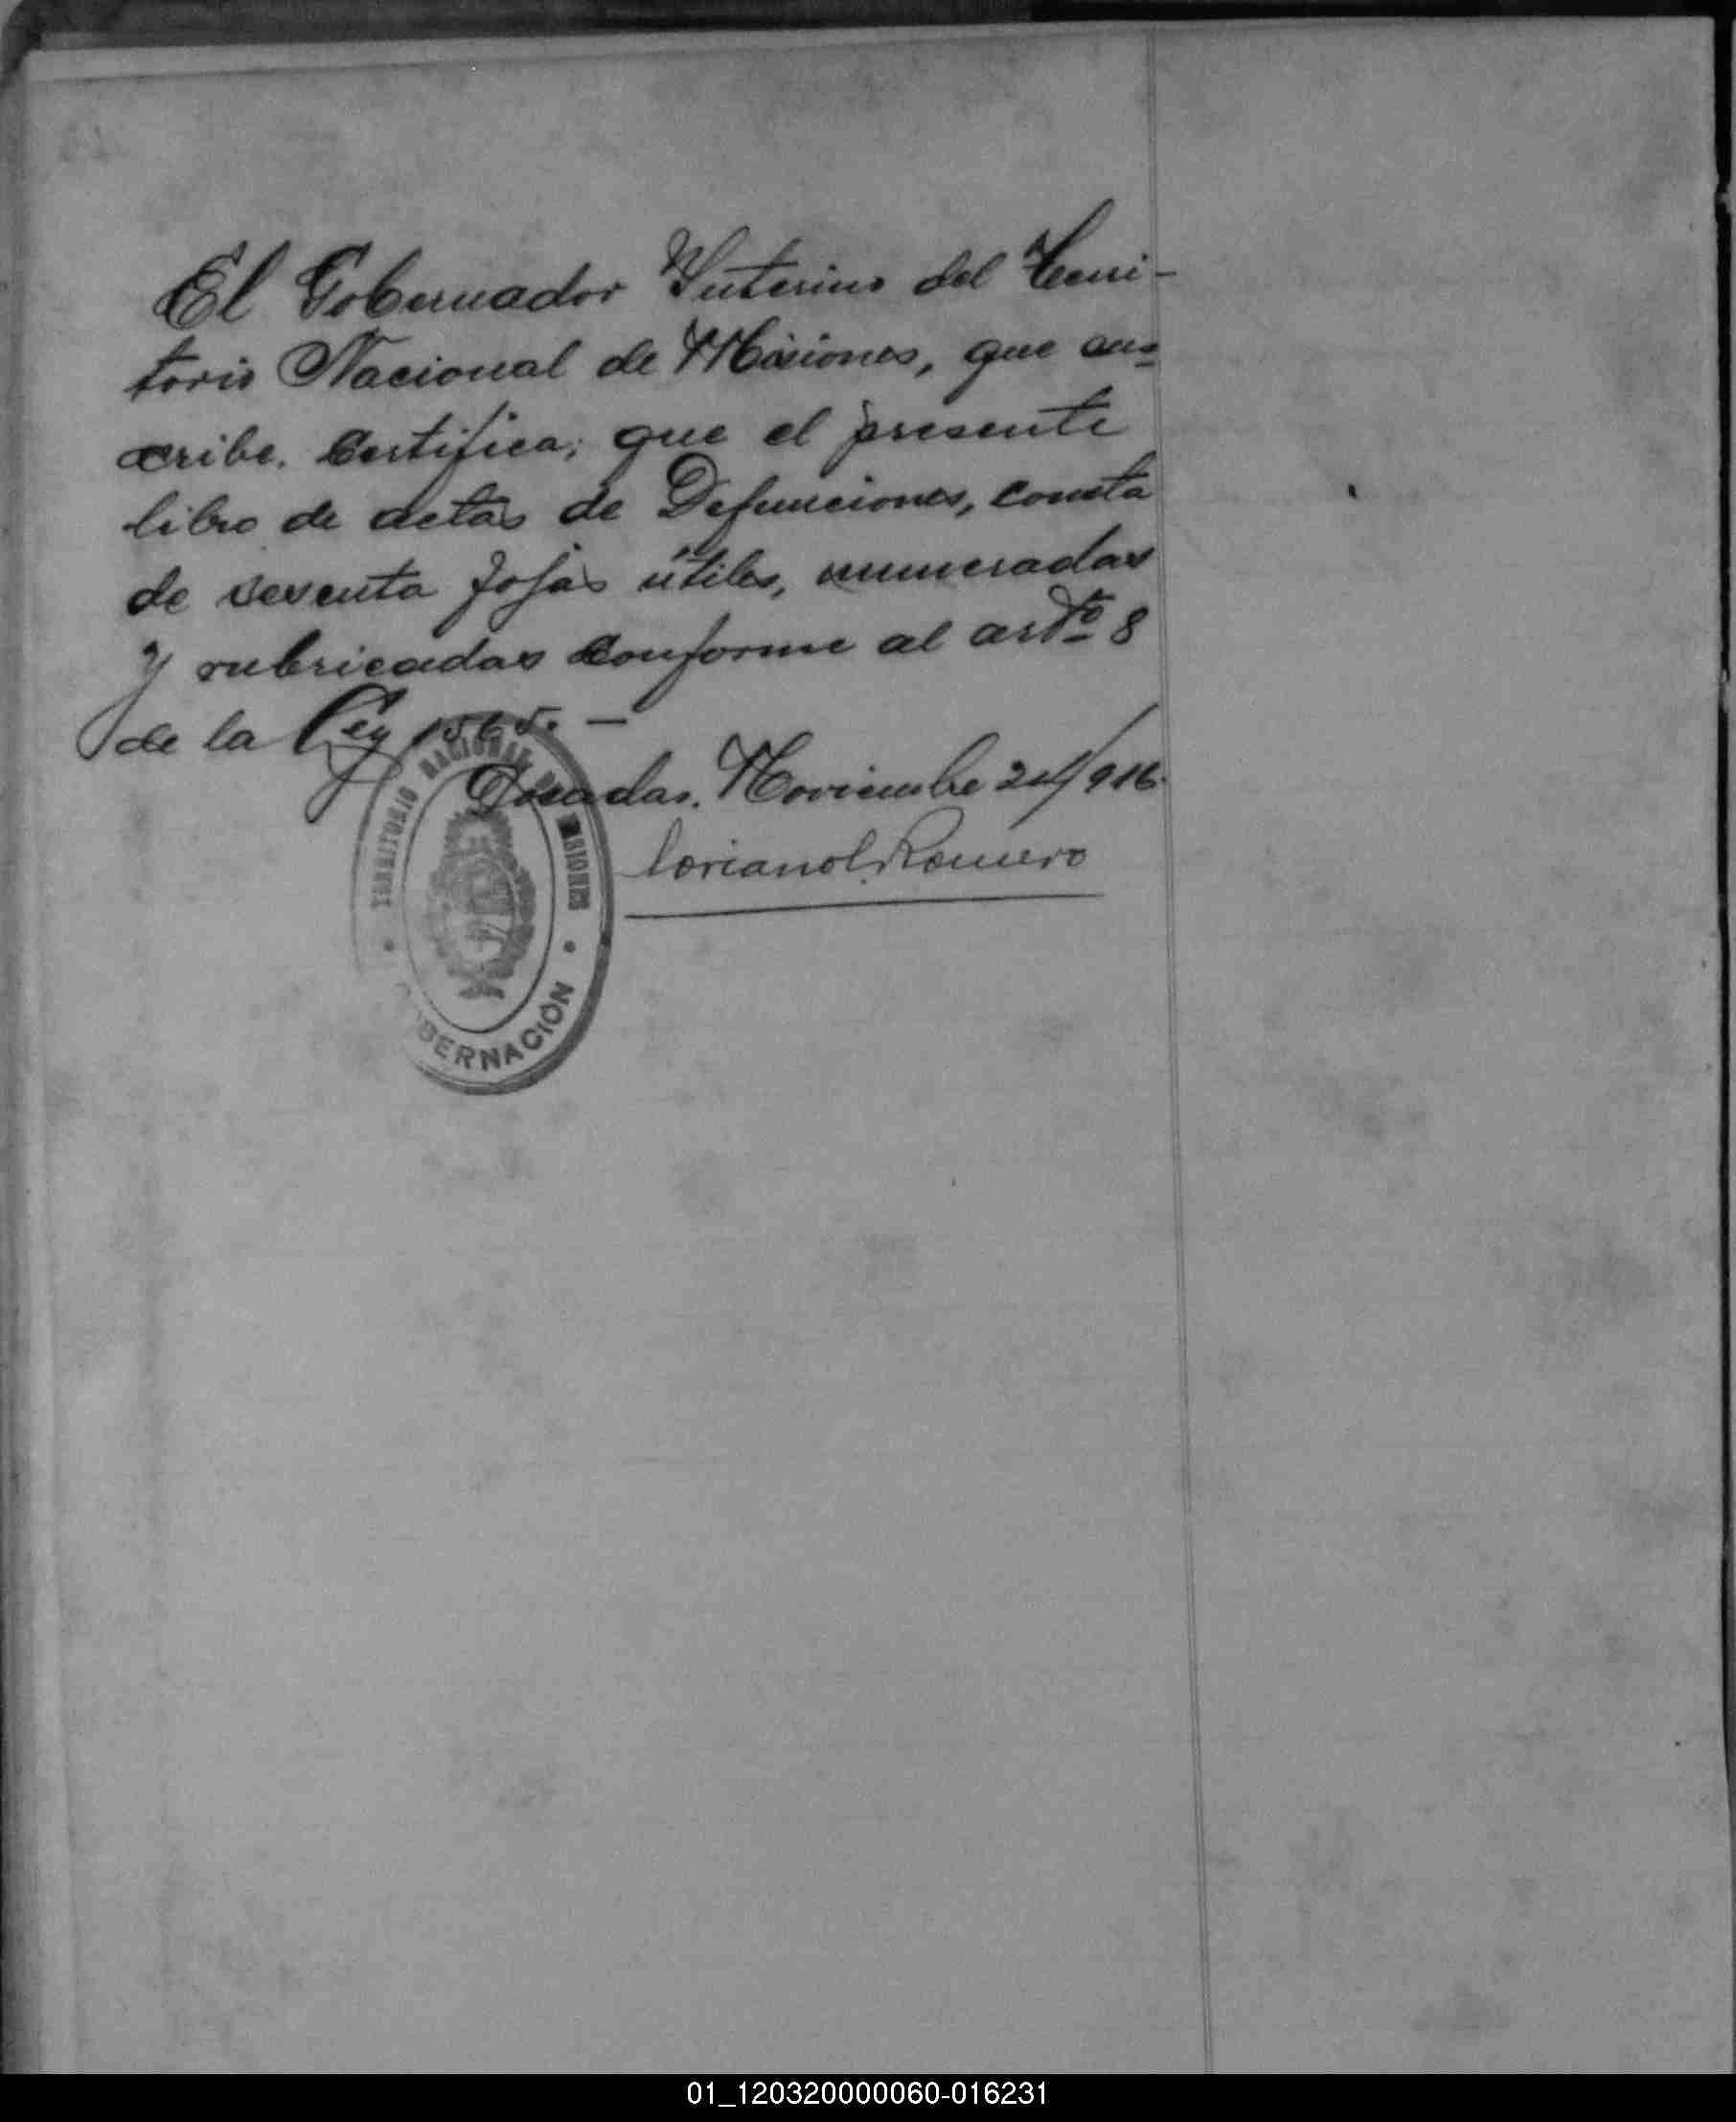 El Gobernador Interino del Terri-
torio Nacional de Misiones, que sus-
cribe. Certifica; que el presente
libro de actas de Defunciones, consta
de sesenta fojas útiles, numeradas
y rubricadas conforme al artº 8
de la Ley 1565. —
Posadas. Noviembre 24/916.
Romero
TERRITORIO NACIONAL DE MISIONES
GOBERNACIÓN
01_120320000060-016231